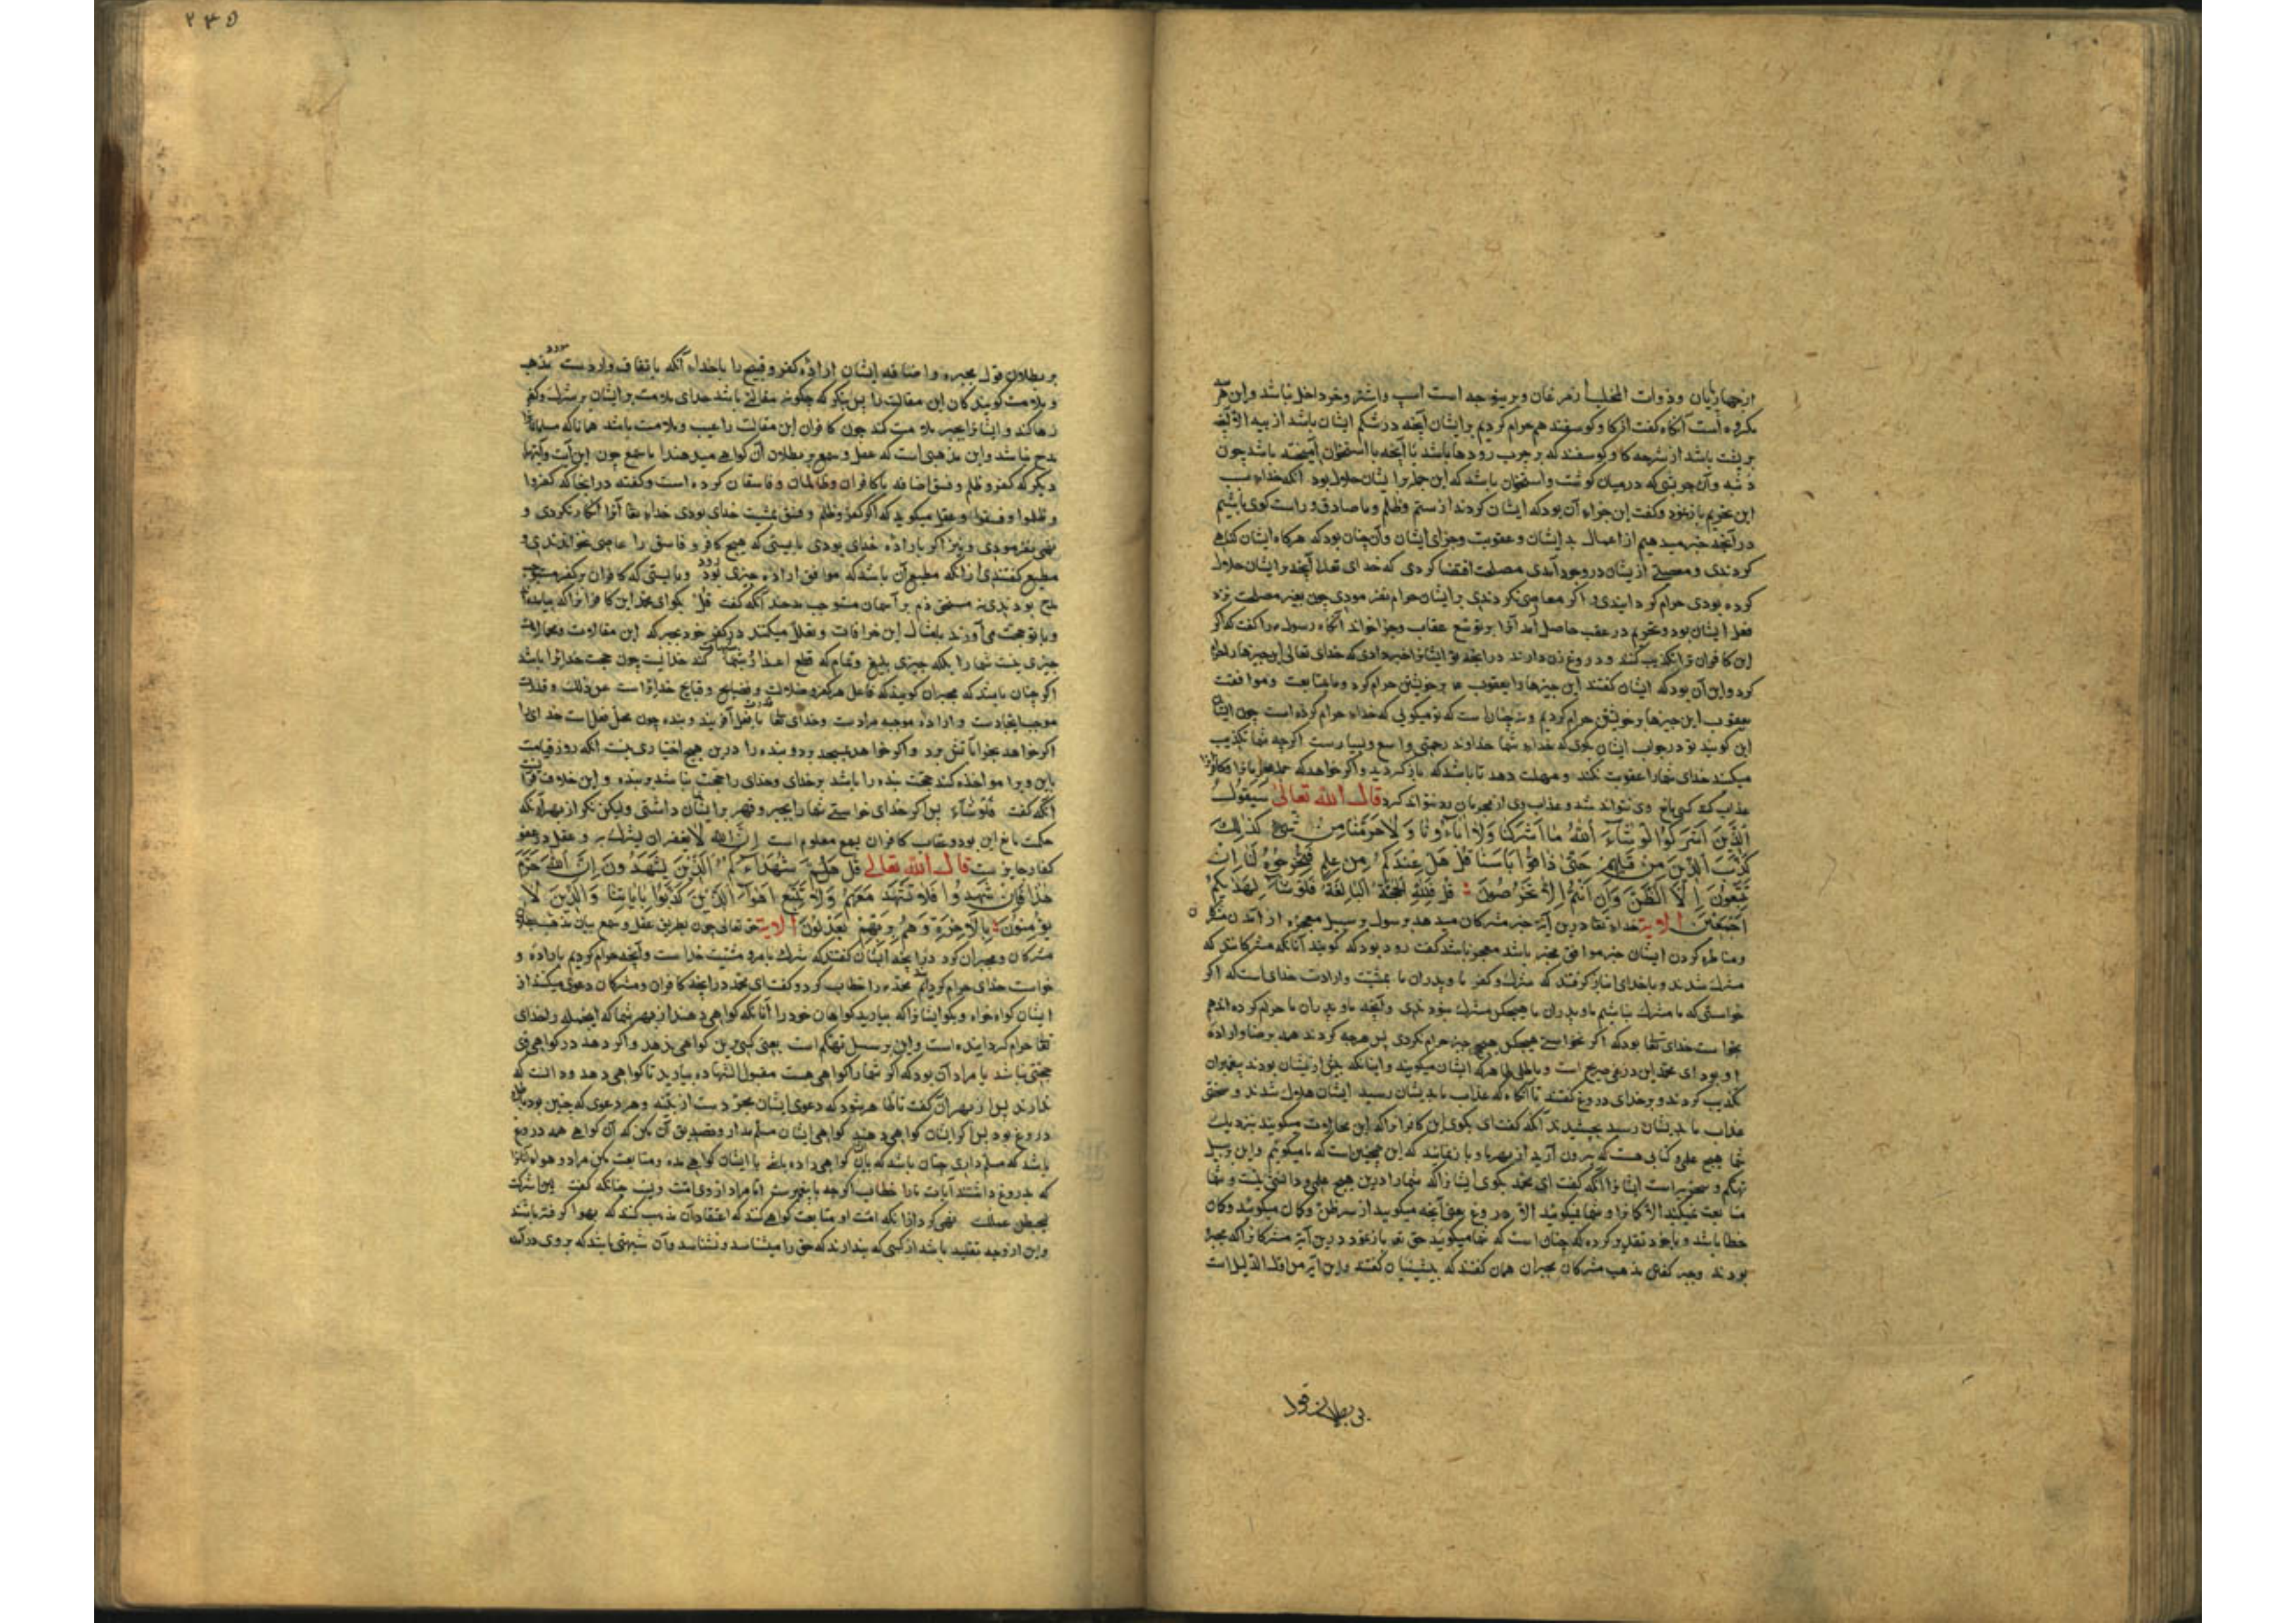 از چهارپایان وذوات المخلب از مرغان و برینوجه است اسپ واشتر وخر داخل نباشد واین هر سه
مکروه است آنگاه کفت از کاو وکوسفند هم حرام کردیم بر ایشان آنچه در شکم ایشان باشد از پیه الا آنچه
بر پشت باشد از شرحه کاو وکوسفند که بر چرب رودها باشد یا آنچه با استخوان آمیخته باشد چون
دنبه وآن چربشی که در میان کوشت واستخوان باشد که این جمله بر ایشان حلال بود آنکه خدا سبب
این تحریم باز نمود وکفت این جزاء آن بود که ایشان کردند از ستم وظلم وما صادق و راست کوی باشیم
در آنچه خبر میدهیم از اعمال بد ایشان و عقوبت وجزای ایشان وآن چنان بود که هرکاه ایشان کناهی
کردندی ومعصیتی از یشان در وجود آمدی مصلحت اقتضا کردی که خدای تعالا آنچه بر ایشان حلال
کرده بودی حرام کردایندی و اکر معاصی نکردندی بر ایشان حرام نفرمودی چون تغیر مصلحت نزد
فعل ایشان بود وتحریم در عقب حاصل آمد آنرا بر توسع عقاب وجزا خواند آنکاه رسول را کفت که اکر
این کافران ترا تکذیب کنند و دروغ زن دارند در آنچه تو ایشانرا خبر دادی که خدای تعالی این چیزها را حرام
کرد واین آن بود که ایشان کفتند این چیزها را یعقوب ع بر خویشتن حرام کرد وما متابعت وموافقت
یعقوب این چیزها بر خویشتن حرام کردیم ونه چنان است که تو میکویی که خداء حرام کرده است چون ایشان
این کویند تو در جواب ایشان کوی که خداء شما خداوند رحمتی واسع وبسیارست اکرچه شما تکذیب
میکنید خدای شمارا عقوبت نکند و مهلت دهد تا باشد که باز کردید واکر خواهد که
عذاب کند کسی مانع وی نتواند شد وعذاب وی از مجرمان رد نتواند کرد قال الله تعالی سَیَقُولُ
الَّذِینَ أَشْرَکُوا لَوْ شَآءَ اللهُ مَا أَشْرَکْنَا وَلَا آبَاؤُنَا وَلَا حَرَّمْنَا مِنْ شَیْءٍ کَذٰلِکَ
کَذَّبَ الَّذِینَ مِنْ قَبْلِهِمْ حَتّٰی ذَاقُوا بَأْسَنَا قُلْ هَلْ عِنْدَکُمْ مِنْ عِلْمٍ فَتُخْرِجُوهُ لَنَا اِنْ
تَتَّبِعُونَ إِلَّا الظَّنَّ وَإِنْ أَنْتُمْ إِلَّا تَخْرُصُونَ قُلْ فَلِلّٰهِ الْحُجَّةُ الْبَالِغَةُ فَلَوْ شَآءَ لَهَدٰیکُمْ
اَجْمَعِینَ الایة خداء تعا درین آیة خبر مشرکان میدهد برسول بر سبیل معجزه از آمدن
ومناظره کردن ایشان خبر موافق مخبر باشد معجز باشد کفت زود بود که کویند آنانکه مشرکانند که
مشرک شدند و با خدای انباز کرفتند که شرک وکفر ما وپدران ما بمشیت وارادت خدای است که اکر
خواستی که ما مشرک نباشیم ما و پدران ما هیچکس مشرک نبودندی وآنچه ما و پدران ما حرام کرده اندهم
بخواست خدای تعا بود که اکر نخواستی هیچکس هیچ چیز حرام نکردی پس هرچه کردند همه برضا وارادة
او بود ای محمد این دروغی صریح است و باطلی ظاهر که ایشان میکویند واینانکه پیش از یشان بودند پیغمبران
تکذیب کردند و بر خدای دروغ کفتند تا آنکاه که عذاب ما بدیشان رسید ایشان هلاک شدند و سختی
عذاب ما بدیشان رسید بچشیدند آنکه کفت ای بکوی این کافرانرا که این محالات میکویند نزدیک
شما هیچ علم وکتابی هست که بیرون آرید از بهر ما و با ز نمایید که این همچنین است که ما میکوئیم واین بر سبیل
تهکم وسخریه است ایشانرا آنکه کفت ای محمد بکوی ایشانرا که شما را درین هیچ علم و دانشی نیست و شما
متابعت نمیکنید الا کمانرا و شما نمیکوئید الا دروغ یعنی آنچه میکویید از سر ظن و کمان میکوئید وکمان
خطا باشد و با خود تقدیر کرده که چنان است که شما میکوئید حق تعا باز نمود درین آیة مشرکانرا که مجبره
بودند وجبر کفتن مذهب مشرکان مجبران همان کفتند که پیشینیان کفتند واین آیة من اول الدلیل است
بر بطلان قول
۲۳۵
بر بطلان قول مجبره واضافه ایشان ارادة کفر وقبیح را با خداء آنکه باتفاق وارد ست مذهب
و ملامت کویندکان این مقالت را پس بنکر که چکونه مقالتی باشد خدای ملامت بر ایشان بر شرک وکفر
رها کند وایشانرا بجبر ملامت کند چون کافران این مقالت را عیب وملامت باشد همانا که مسلمانانرا
مدح نباشد واین مذهبی است که عقل و سمع بر بطلان آن کواهی میدهند اما سمع چون این آیت وآیتهاء
دیکر که کفر و ظلم وفسق اضافه با کافران وظالمان وفاسقان کرده است وکفته در آنجا که کفروا
وظلموا وفسقوا وعقل میکوید که اکر کفر وظلم وفسق بمشیت خدای بودی خداء تعا آنرا انکار نکردی و
نهی نفرمودی ونیز اکر بارادة خدای بودی بایستی که هیچ کافر و فاسق را عاصی نخواندندی و
مطیع کفتندی از آنکه مطیع آن باشد که موافق ارادة چیزی بود وبایستی که کافران بر کفر مستحق
مدح بودندی نه مستحق ذم آنکه کفت قل بکو ای محمد این کافرانرا که
وبا تو حجت می آورند بامثال این خرافات وتعلل میکنند در کفر خود بجبر که این مقالات ومحالات
چیزی نیست شما را بلکه چیزی بلیغ وتمام که قطع اعذار شما کند خدایست چون حجت خدایرا باشد
اکر چنان باشد که مجبران کویند که فاعل هر کفر وضلالت وفضایح وقبایح خدایرا است عن ذلک وقدرت
موجبه ایجادست و ارادة موجبه مرادست وخدای تعا با فعل آفریند وبنده چون محل فعل است خدایرا
اکر خواهد بخواهد بآتش برد واکر خواهد بمسجد برد وبنده را درین هیچ اختیاری نیست آنکه روز قیامت
باین ویرا مواخذه کند حجت بنده را باشد بر خدای وخدای را حجت نباشد بر بنده واین خلاف قرآن
آنکه کفت فَلَوْ شَآءَ پس اکر خدای خواستی شمارا بجبر وقهر بر ایمان داشتی ولیکن نکرد از بهر آنکه
حکمت مانع این بود وعقاب کافران بسمع معلوم است إِنَّ اللهَ لَا یَغْفِرُ أن یشرک به و عقل در عفو
کفار جایزست قال الله تعالی قُلْ هَلُمَّ شُهَدَآءَکُمُ الَّذِینَ یَشْهَدُونَ اِنَّ اللهَ حَرَّمَ
هٰذَا فَإِنْ شَهِدُوا فَلَا تَشْهَدْ مَعَهُمْ وَلَا تَتَّبِعْ اَهْوَآءَ الَّذِینَ کَذَّبُوا بِآیَاتِنَا وَالَّذِینَ لَا
یُؤْمِنُونَ بِالْآخِرَةِ وَهُمْ بِرَبِّهِمْ یَعْدِلُونَ الایة حق تعالی چون بطریق عقل وسمع بیان مذهب
مشرکان ومجبران کرد در آنچه ایشان کفتند که شرک ما بمراد ومشیت خداست وآنچه حرام کردیم باراده و
خواست خدای حرام کردیم محمد را خطاب کرد وکفت ای محمد در آنچه کافران ومشرکان دعوی میکنند از
ایشان کواه خواه وبکو ایشانرا که بیارید کواهان خود را آنانکه کواهی دهند از بهر شما که این جمله را خدای
تعا حرام کردانیده است واین بر سبیل تهکم است یعنی کسی برین کواهی ندهد واکر دهد در کواهی وی
حجتی نباشد یا مراد آن بود که اکر شمارا کواهی هست مقبول الشهاده بیارید تا کواهی دهد ودانست که
ندارند پس از بهر آن کفت تا ظاهر شود که دعوی ایشان مجردست از بینه وهر دعوی که چنین بود
دروغ بود پس اکر ایشان کواهی دهند کواهی ایشان مسلم مدار وتصدیق آن مکن که آن کواهی همه دروغ
باشد که مسلم داری چنان باشد که بآن کواهی داده باشی با ایشان کواهی مده ومتابعت مکن مراد وهواء آنانرا
که بدروغ داشتند آیات ما را خطاب اکرچه با پیغمبرست اما مراد ازوی امت ویست چنانکه کفت لئن اشرکت
لیحبطن عملک نهی کرد از آنکه امت او متابعت کواهی کنند که اعتقاد آن مذهب کنند که بهوا کرفته باشند
واین از وجه تقلید باشد از کسی که پندارند که حق را میشناسد ونشناسد وآن شبهتی باشد که بروی درآمده